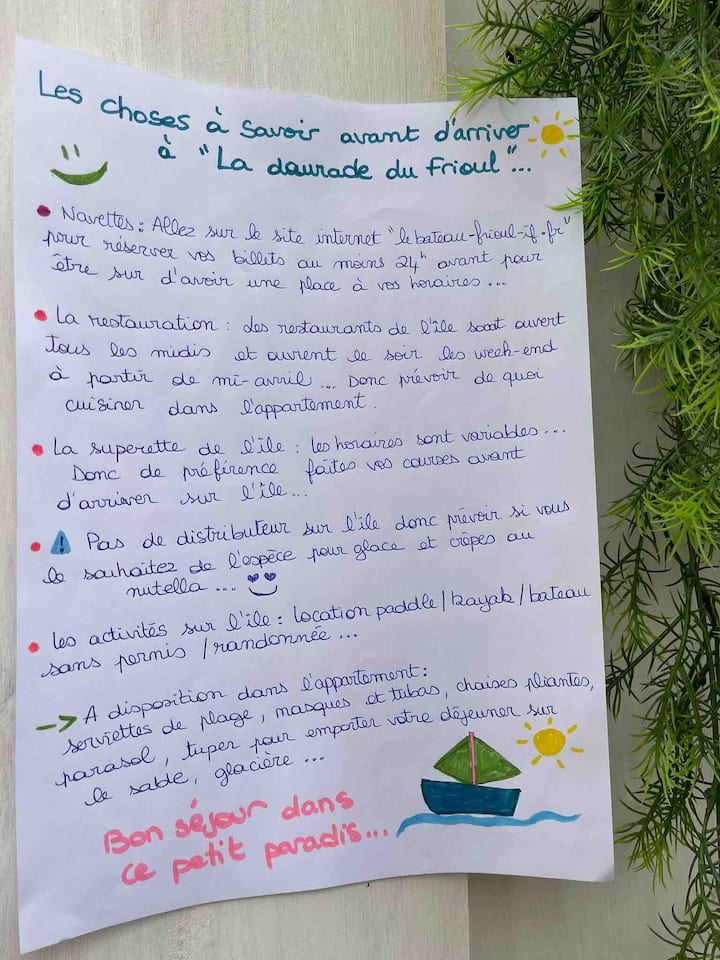 Les choses à savoir avant d'arriver
à "La daurade du Frioul"...
• Navettes : Allez sur le site internet "lebateau-frioul-if.fr"
pour réserver vos billets au moins 24h avant pour
être sur d'avoir une place à vos horaires ...
• La restauration : les restaurants de l'île sont ouvert
tous les midis et ouvrent le soir les week-end
à partir de mi-avril ... Donc prévoir de quoi
cuisiner dans l'appartement.
• La superette de l'île : les horaires sont variables ...
Donc de préférence faites vos courses avant
d'arriver sur l'île ...
• ! Pas de distributeur sur l'île donc prévoir si vous
le souhaitez de l'espèce pour glace et crêpes au
nutella ...
• Les activités sur l'île : location paddle/kayak/bateau
sans permis/randonnée ...
→ A disposition dans l'appartement :
serviettes de plage, masques et tubas, chaises pliantes,
parasol, tuper pour emporter votre déjeuner sur
le sable, glacière ...
Bon séjour dans
ce petit paradis...